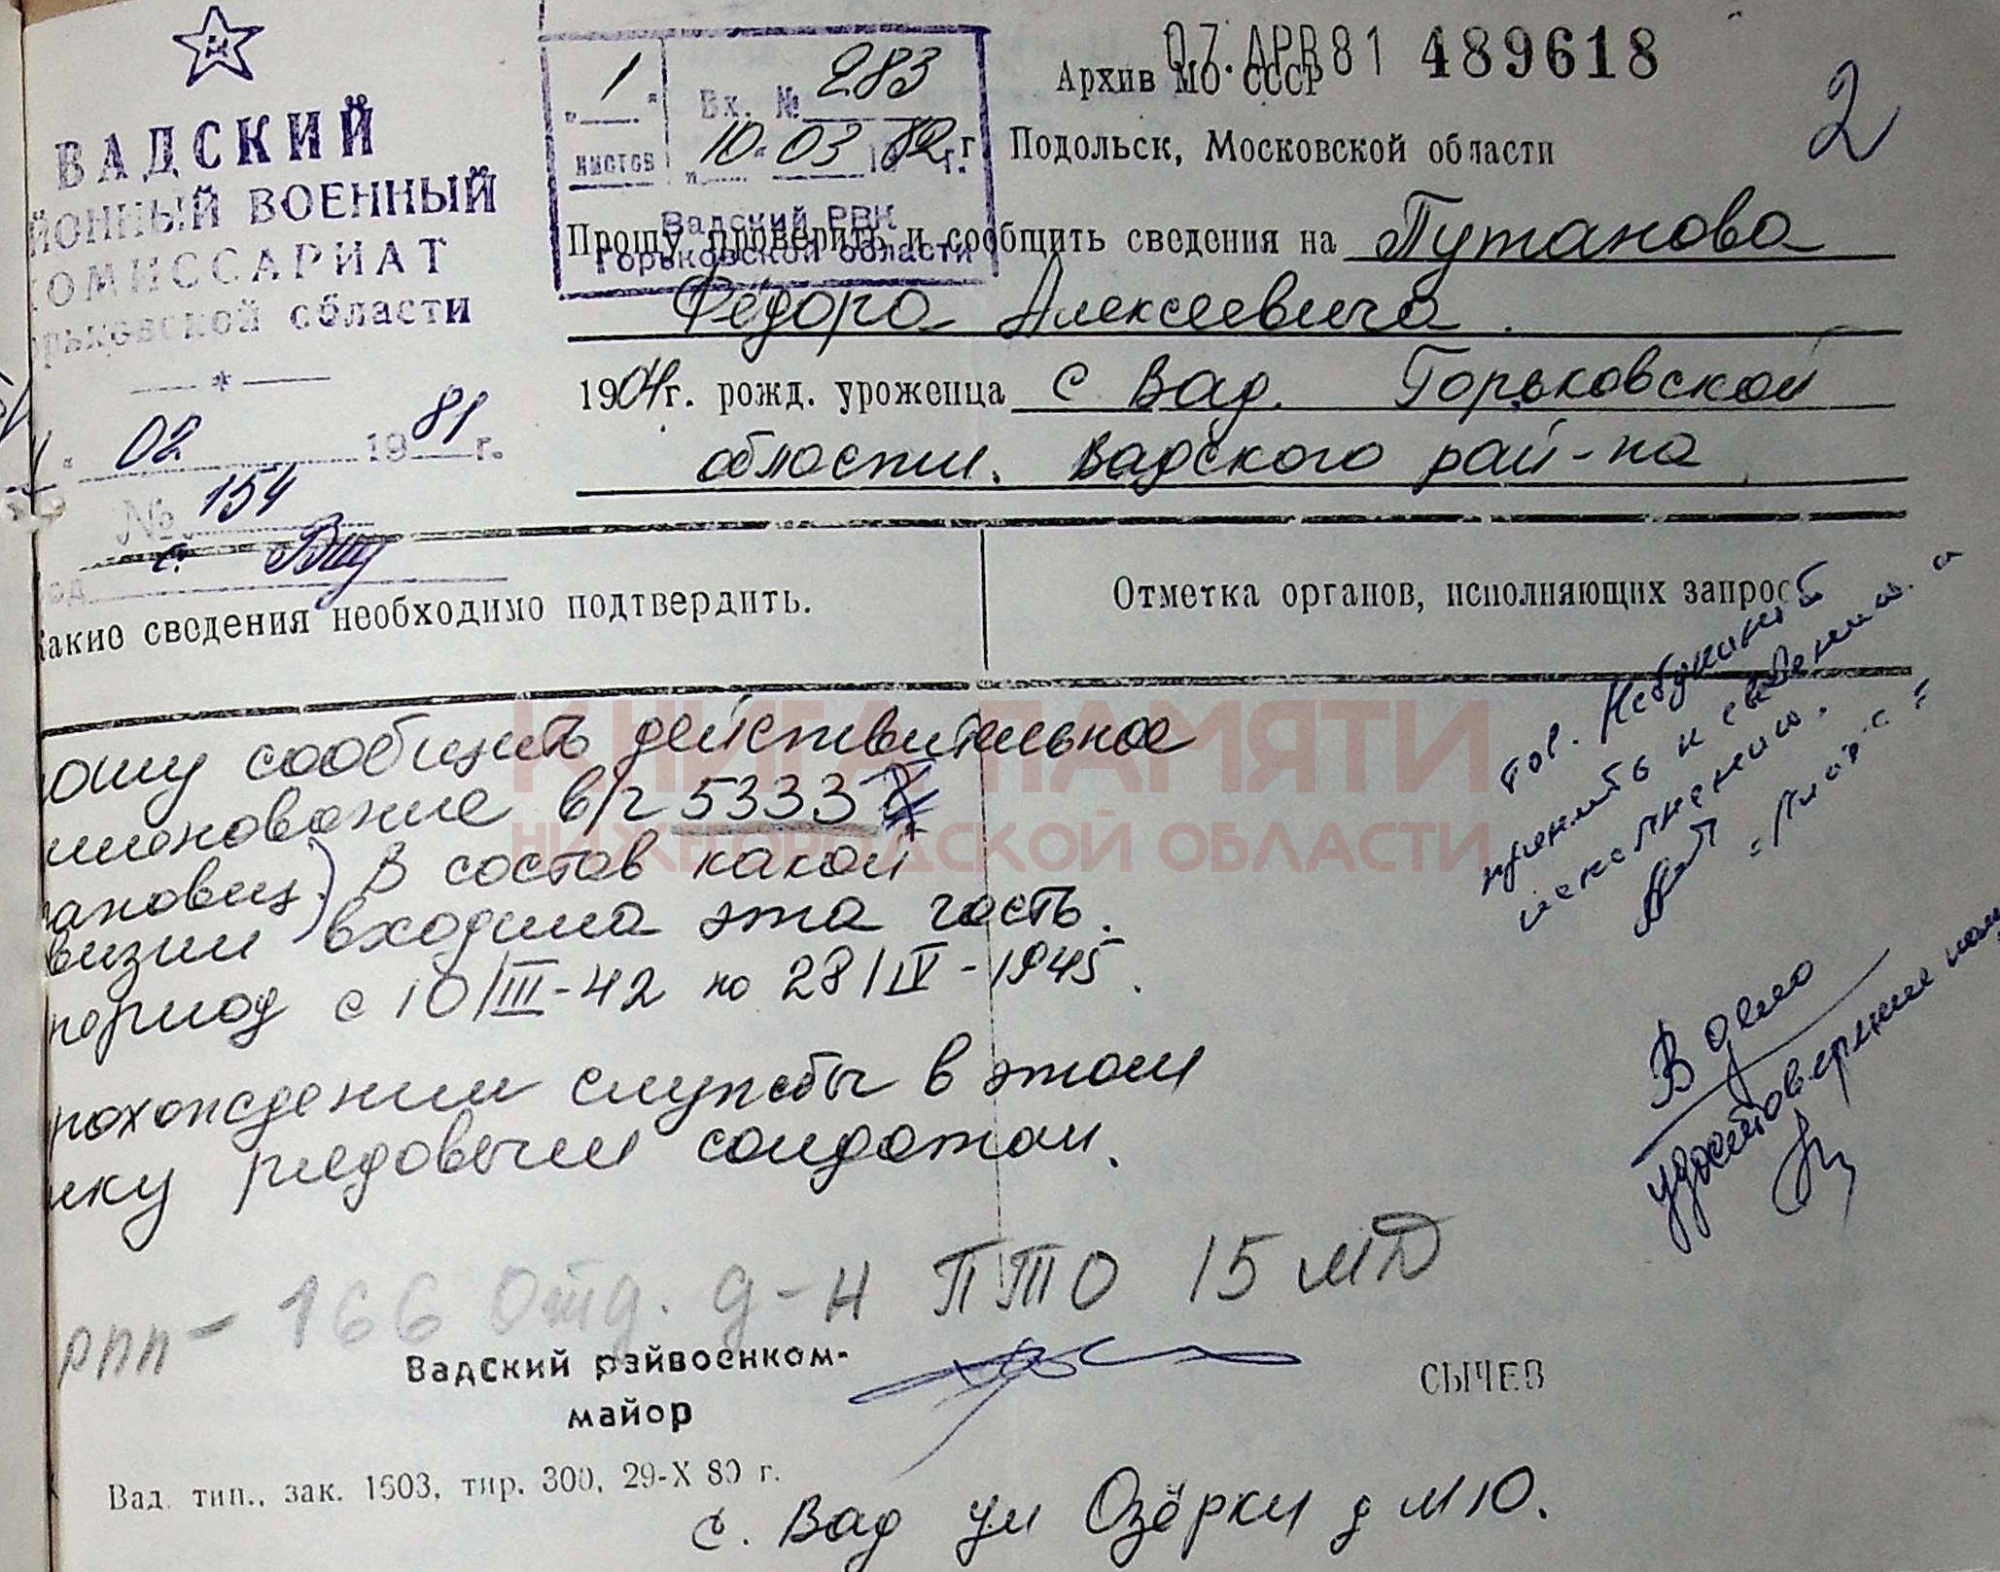 ВАДСКИЙ
ЙОННЫЙ ВОЕННЫЙ
КОМИССАРИАТ
рьковской области
02 1981 г.
№ 154
с. Вад
1 листов
Вх. № 283
10 03 1982 г.
Вадский РВК
Горьковской области
07. АПР 81 489618
2
Архив МО СССР
Подольск, Московской области
Прошу проверить и сообщить сведения на Путанова
Фёдора Алексеевича.
1904 г. рожд. уроженца с Вад. Горьковской
области. Вадского рай-на
какие сведения необходимо подтвердить.
Отметка органов, исполняющих запрос
ошу сообщить действительное
именование в/ч 5333
ановиц. В состав какой
визии входила эта часть.
период с 10/III-42 по 28/IV-1945.
рохождении службы в этом
нку рядовым солдатом.
рпп - 166 Отд. д-н ПТО 15 МД
тов.
принять к сведению и
исполнению.
В дело
Вадский райвоенком-
майор
СЫЧЕВ
Вад. тип., зак. 1503, тир. 300, 29-X 80 г.
с. Вад ул Озёрки д №10.
КНИГА ПАМЯТИ
НИЖЕГОРОДСКОЙ ОБЛАСТИ